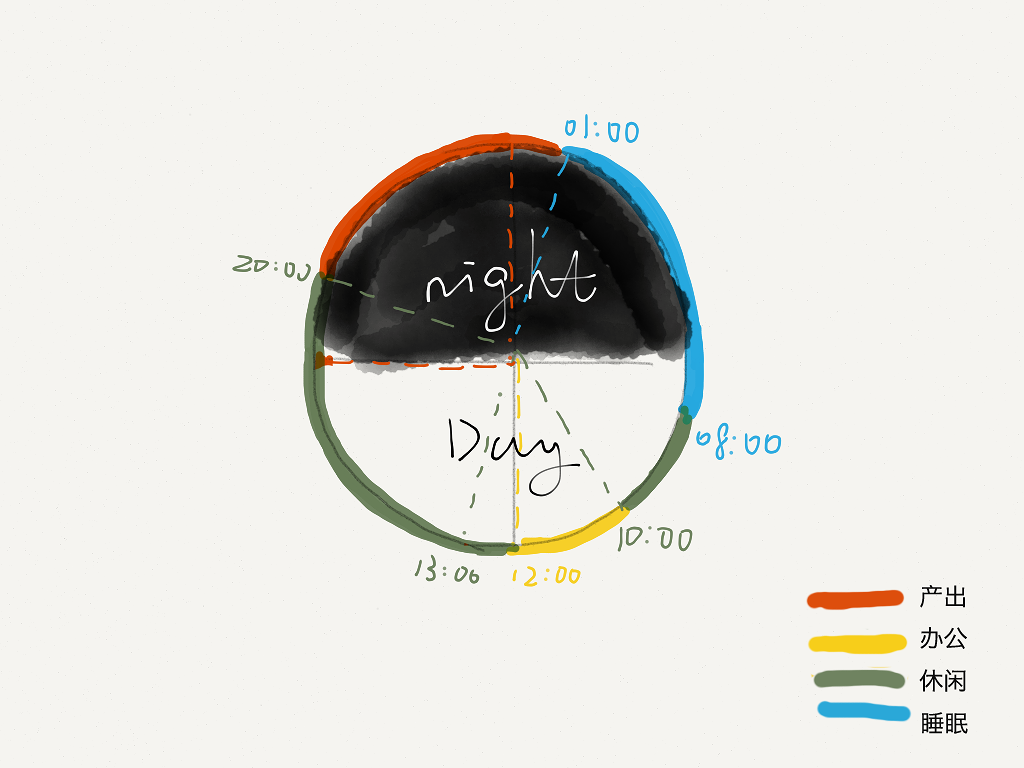 01:00
20:00
night
Day
08:00
10:00
13:00
12:00
产出
办公
休闲
睡眠